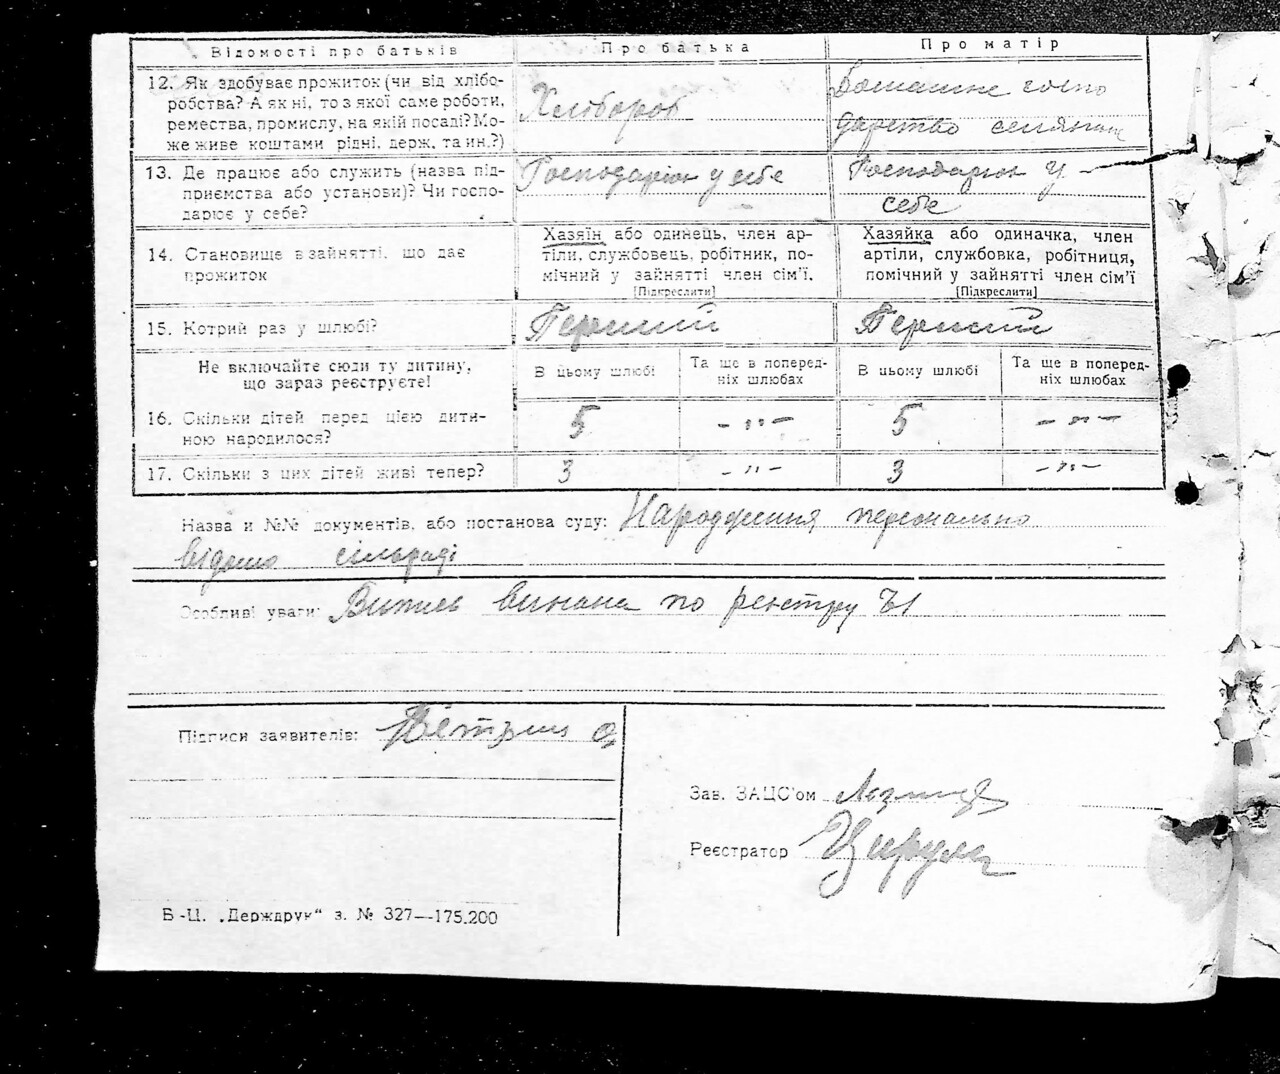 Відомості про батьків Про батька Про матір
12. Як здобуває прожиток (чи від хлібо- Хлібороб Домашнє госпо
робства? А як ні, то з якої саме роботи, дарство селянин
ремества, промислу, на якій посаді? Мо-
же живе коштами рідні, держ. та ин.?)
13. Де працює або служить (назва під- Господарює у себе Господарює у
приємства або установи)? Чи госпо- себе
дарює у себе?
14. Становище в зайнятті, що дає
прожиток
Хазяїн або одинець, член ар-
тіли, службовець, робітник, по-
мічний у зайнятті член сім'ї.
[Підкреслити]
Хазяйка або одиначка, член
артіли, службовка, робітниця,
помічний у зайнятті член сім'ї
[Підкреслити]
15. Котрий раз у шлюбі? Перший Перший
Не включайте сюди ту дитину,
що зараз реєструєте!
В цьому шлюбі Та ще в поперед-
ніх шлюбах В цьому шлюбі Та ще в поперед-
ніх шлюбах
16. Скільки дітей перед цією дити- 5 -"- 5 -"-
ною народилося?
17. Скільки з цих дітей живі тепер? 3 -"- 3 -"-
Назва и №№ документів, або постанова суду: Народження персонально
відомо сільраді
Особливі уваги: Випись по реєстру
Підписи заявителів:
Зав. ЗАЦС'ом
Реєстратор
Б-Ц. „Держдрук“ з. № 327—175.200